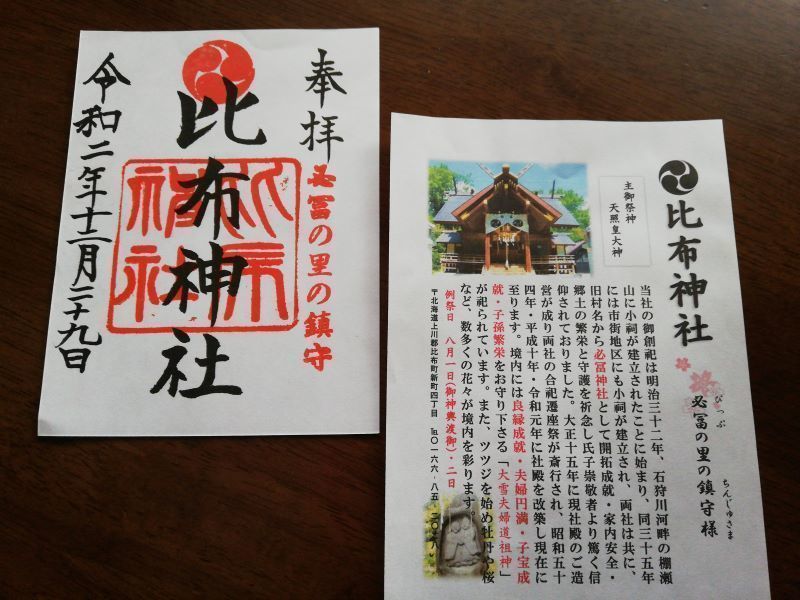 奉拝
必冨の里の鎮守
比布神社
比布神社
令和二年十二月二十九日
比布神社
ぴっぷ ちんじゅさま
必冨の里の鎮守様
主御祭神
天照皇大神
当社の御創祀は明治三十二年、石狩川河畔の棚瀬
山に小祠が建立されたことに始まり、同三十五年
には市街地区にも小祠が建立され、両社は共に、
旧村名から必冨神社として開拓成就・家内安全・
郷土の繁栄と守護を祈念し氏子崇敬者より篤く信
仰されておりました。大正十五年に現社殿のご造
営が成り両社の合祀遷座祭が斎行され、昭和五十
四年・平成十年・令和元年に社殿を改築し現在に
至ります。境内には良縁成就・夫婦円満・子宝成
就・子孫繁栄をお守り下さる「大雪夫婦道祖神」
が祀られています。また、ツツジを始め牡丹や桜
など、数多くの花々が境内を彩ります。
例祭日 八月一日(御神輿渡御)・二日
〒北海道上川郡比布町新町四丁目 ℡〇一六六・八五・